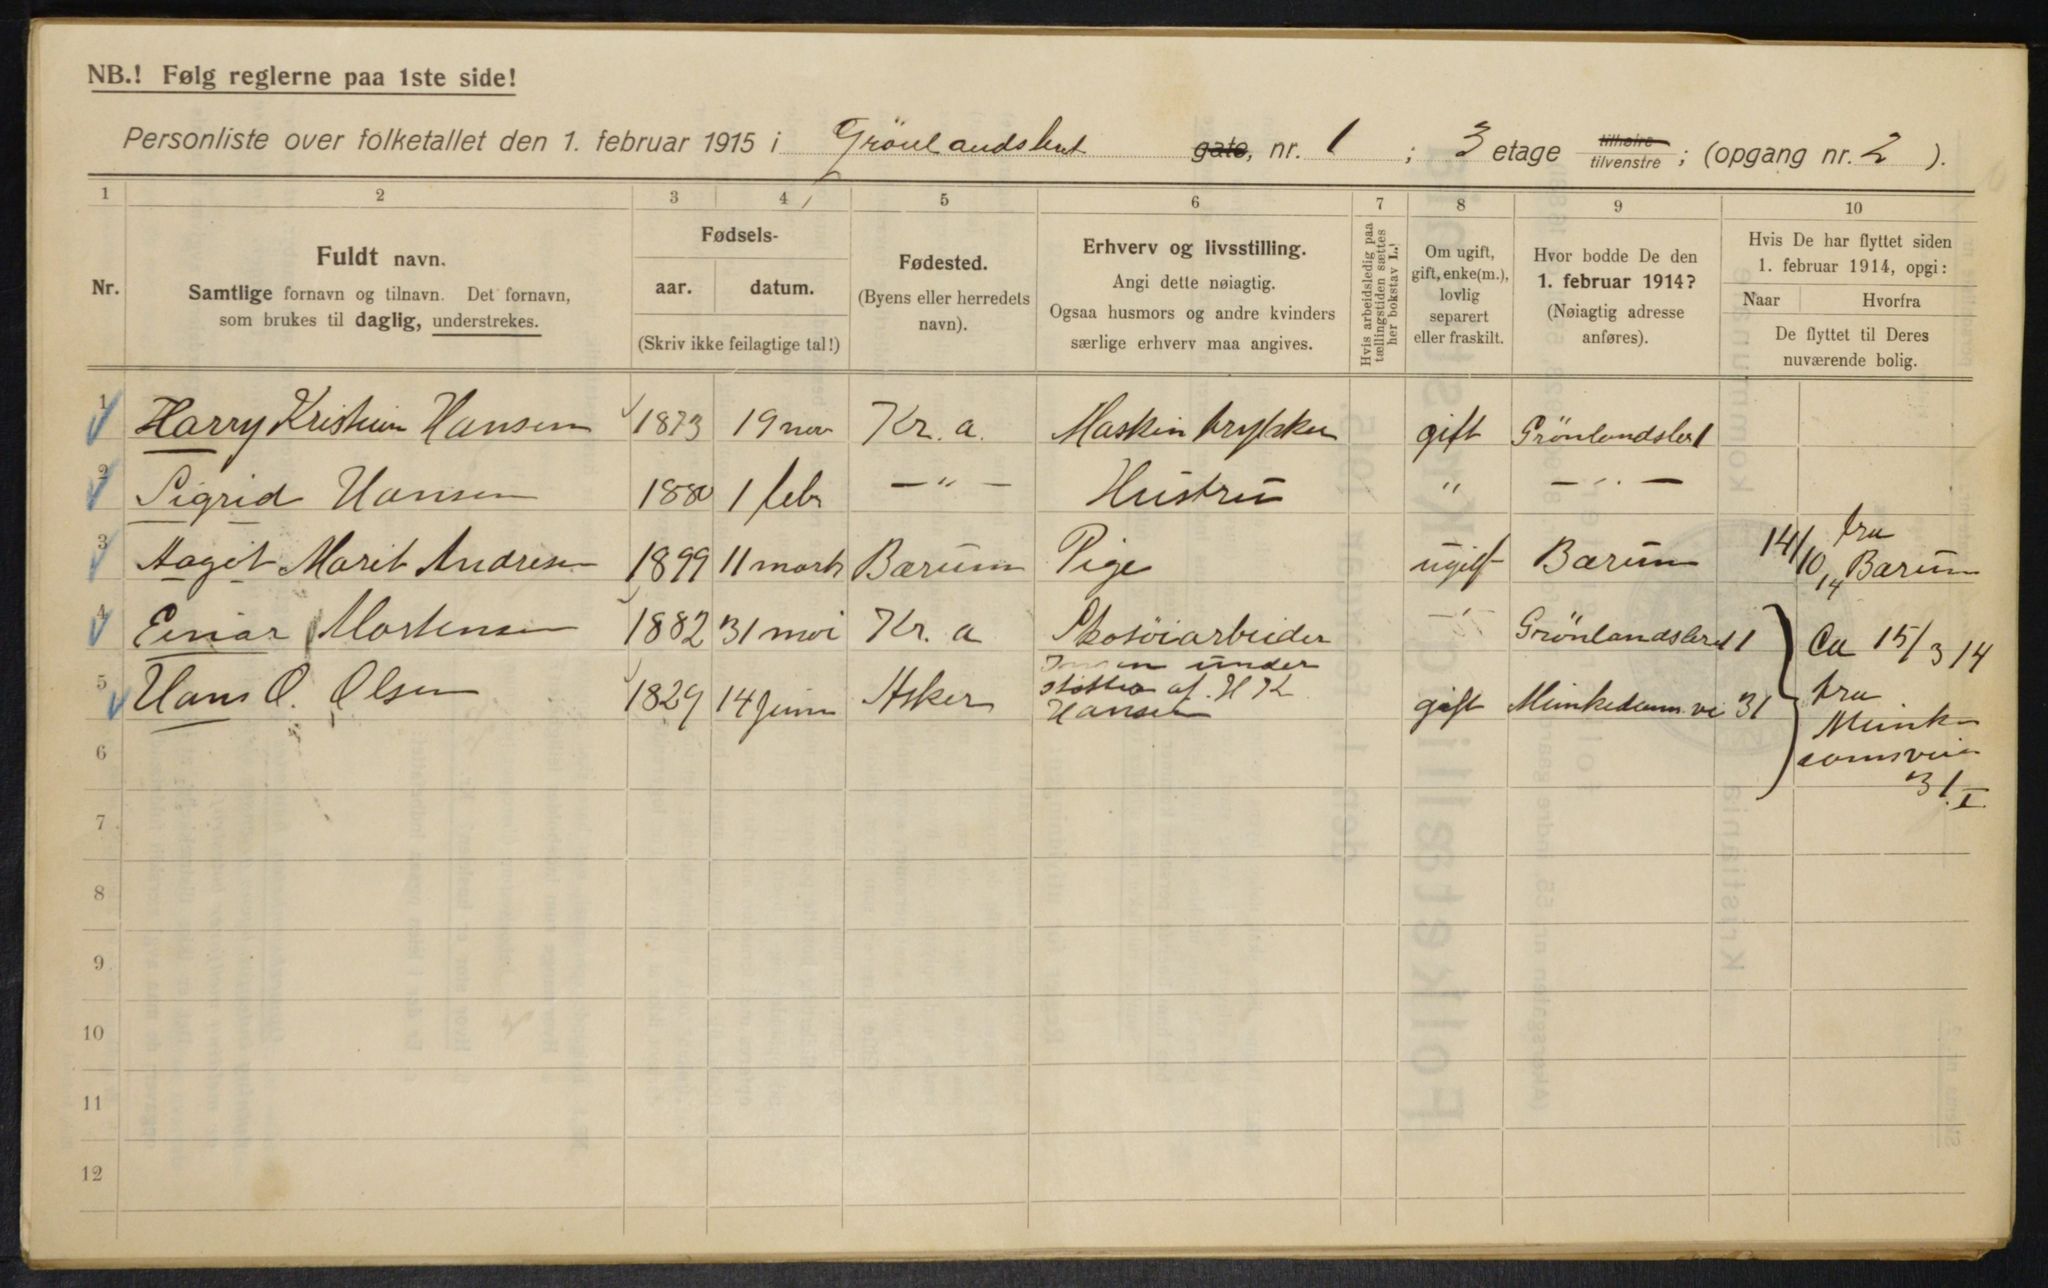 NB.! Følg reglerne paa 1ste side!
Personliste over folketallet den 1. februar 1915 i Grönlandsleret gate, nr. 1 ; 3 etage tilhøire tilvenstre ; (opgang nr. 2 ).
1 2 3 4 5 6 7 8 9 10
Nr.
Fuldt navn.
Samtlige fornavn og tilnavn. Det fornavn,
som brukes til daglig, understrekes.
Fødsels-
aar. datum.
(Skriv ikke feilagtige tal!)
Fødested.
(Byens eller herredets
navn).
Erhverv og livsstilling.
Angi dette nøiagtig.
Ogsaa husmors og andre kvinders
særlige erhverv maa angives.
Hvis arbeidsledig paa
tællingstiden sættes
her bokstav L.!
Om ugift,
gift, enke(m.),
lovlig
separert
eller fraskilt.
Hvor bodde De den
1. februar 1914?
(Nøiagtig adresse
anføres).
Hvis De har flyttet siden
1. februar 1914, opgi:
Naar Hvorfra
De flyttet til Deres
nuværende bolig.
1 Harry Kristian Hansen 1873 19 nov Kr. a. Maskintrykker gift Grönlandsler 1
2 Sigrid Hansen 1880 1 febr — „ — Hustru „ — „ —
3 Aagot Marit Andresen 1899 11 marts Bærum Pige ugift Bærum 14/10 14 fra Bærum
4 Einar Mortensen 1882 31 mai Kr. a Skotöiarbeider — „ Grönlandsleret 1
5 Hans O. Olsen 1829 14 juni Asker
under
støtte af H K
Hansen
gift Munkedamsvei 31
Ca 15/3 14
fra
Munke
damsveien
31 I.
6
7
8
9
10
11
12